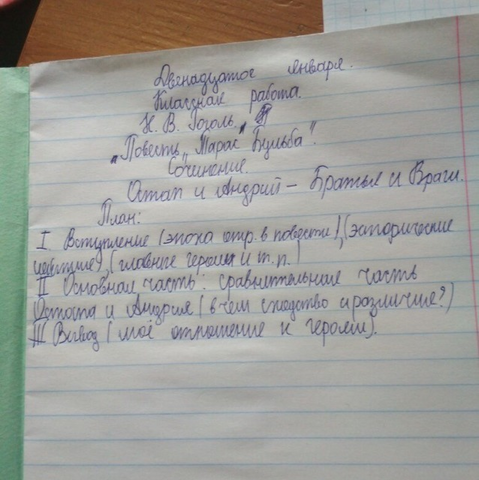 Двенадцатое января.
Классная работа.
Н. В. Гоголь.
„Повесть „Тарас Бульба".
Сочинение.
Остап и Андрий – Братья и Враги.
План:
I Вступление (эпоха отр. в повести), (исторические
), (главные герои и т.п.)
II Основная часть: сравнительная часть
Остапа и Андрия (в чём сходство и различие?)
III Вывод (моё отношение к героям).